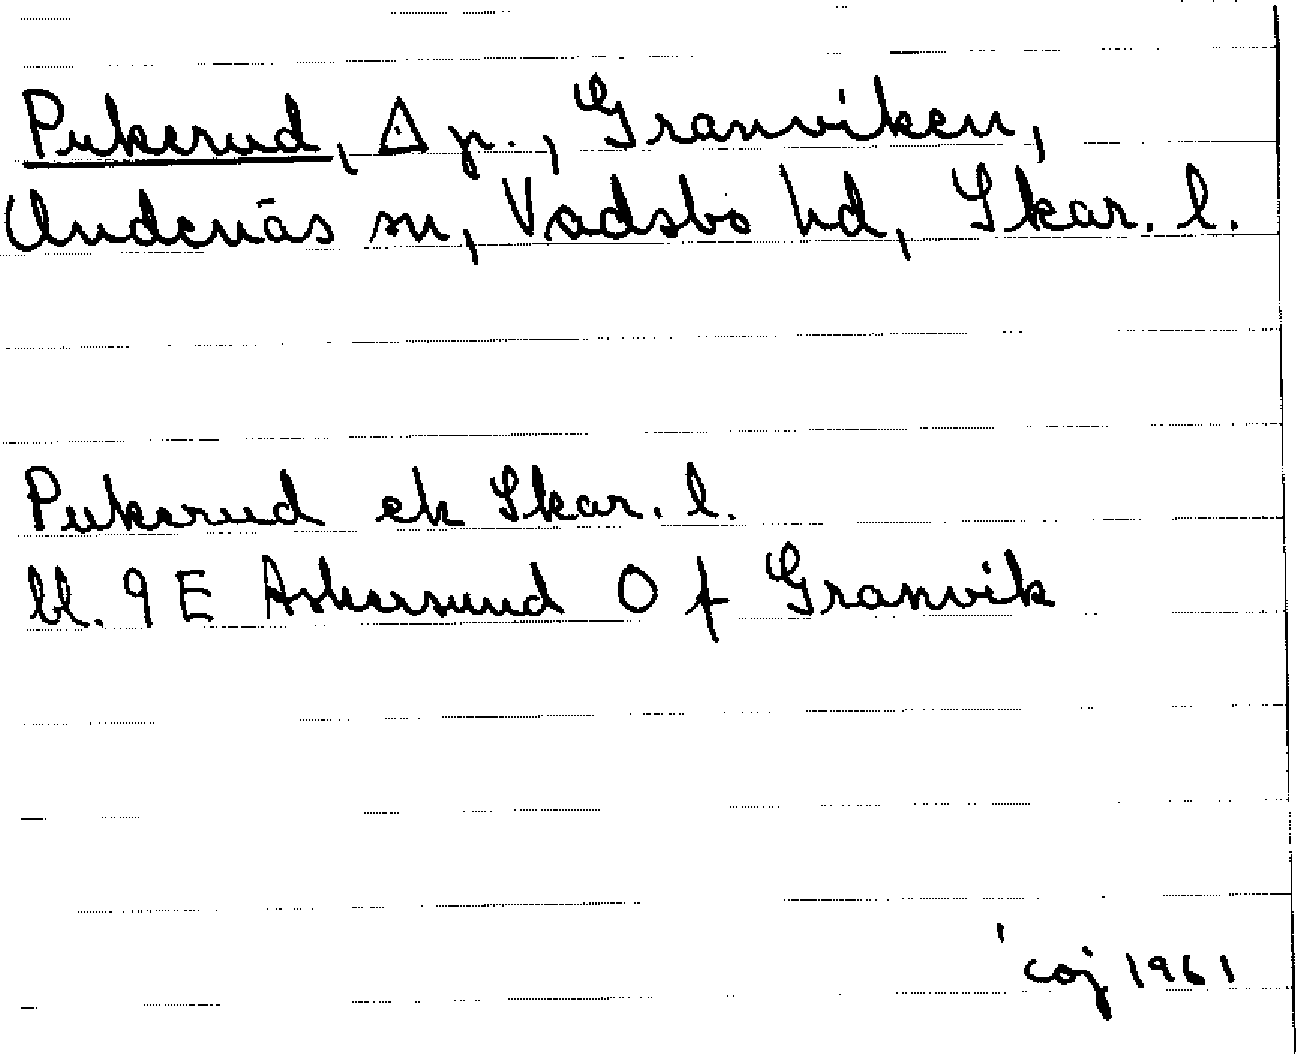 Pukerud, △ p., Granviken,
Undenäs sn, Vadsbo hd, Skar. l.
Pukerud ek Skar. l.
bl. 9 E Askersund O f Granvik
coj 1961